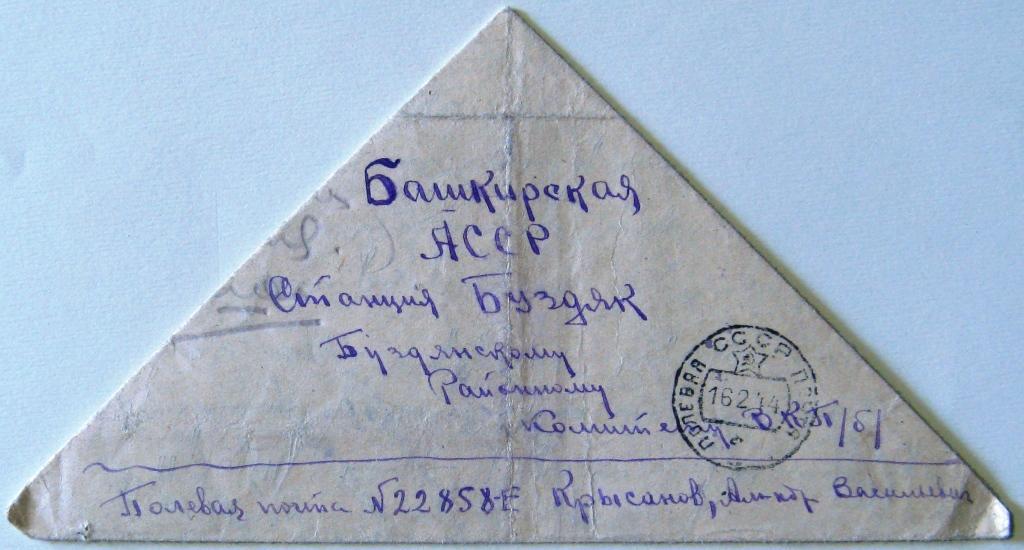 Башкирская
АССР
Станция Буздяк
Буздянскому
Районному
Комитету ВКП/б/
ПОЛЕВАЯ СССР
16 2 44
Полевая почта N22858-Е Крысанов, Ал-др Васильевич